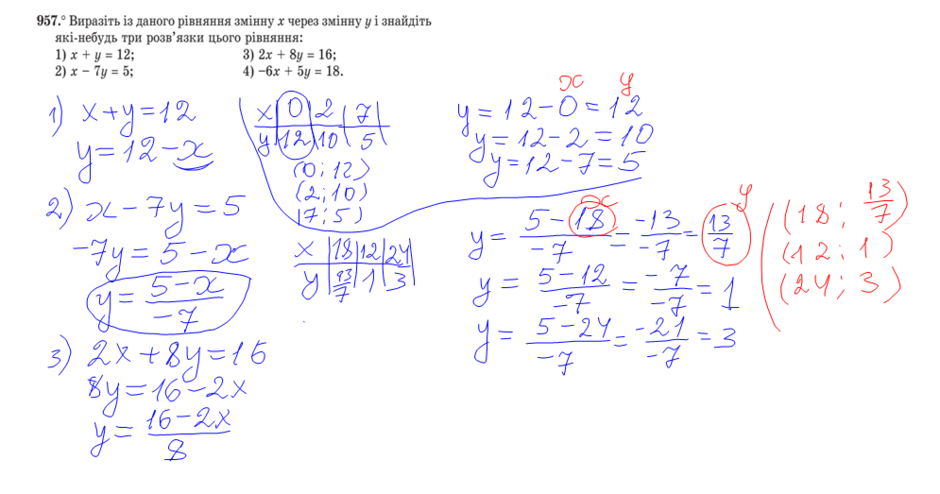 957.° Виразіть із даного рівняння змінну x через змінну y і знайдіть
які-небудь три розв'язки цього рівняння:
1) x + y = 12;
3) 2x + 8y = 16;
2) x − 7y = 5;
4) −6x + 5y = 18.
1) x+y=12
y=12-x
x 0 2 7
y 12 10 5
(0; 12)
(2; 10)
(7; 5)
x y
y = 12-0 = 12
y = 12-2 = 10
y = 12-7 = 5
2) x - 7y = 5
-7y = 5-x
y = \frac{5-x}{-7}
x 18 12 24
y \frac{13}{7} 1 3
x y
y = \frac{5-18}{-7} = \frac{-13}{-7} = \frac{13}{7}
y = \frac{5-12}{-7} = \frac{-7}{-7} = 1
y = \frac{5-24}{-7} = \frac{-21}{-7} = 3
(18; \frac{13}{7})
(12; 1)
(24; 3)
3) 2x+8y=16
8y=16-2x
y = \frac{16-2x}{8}